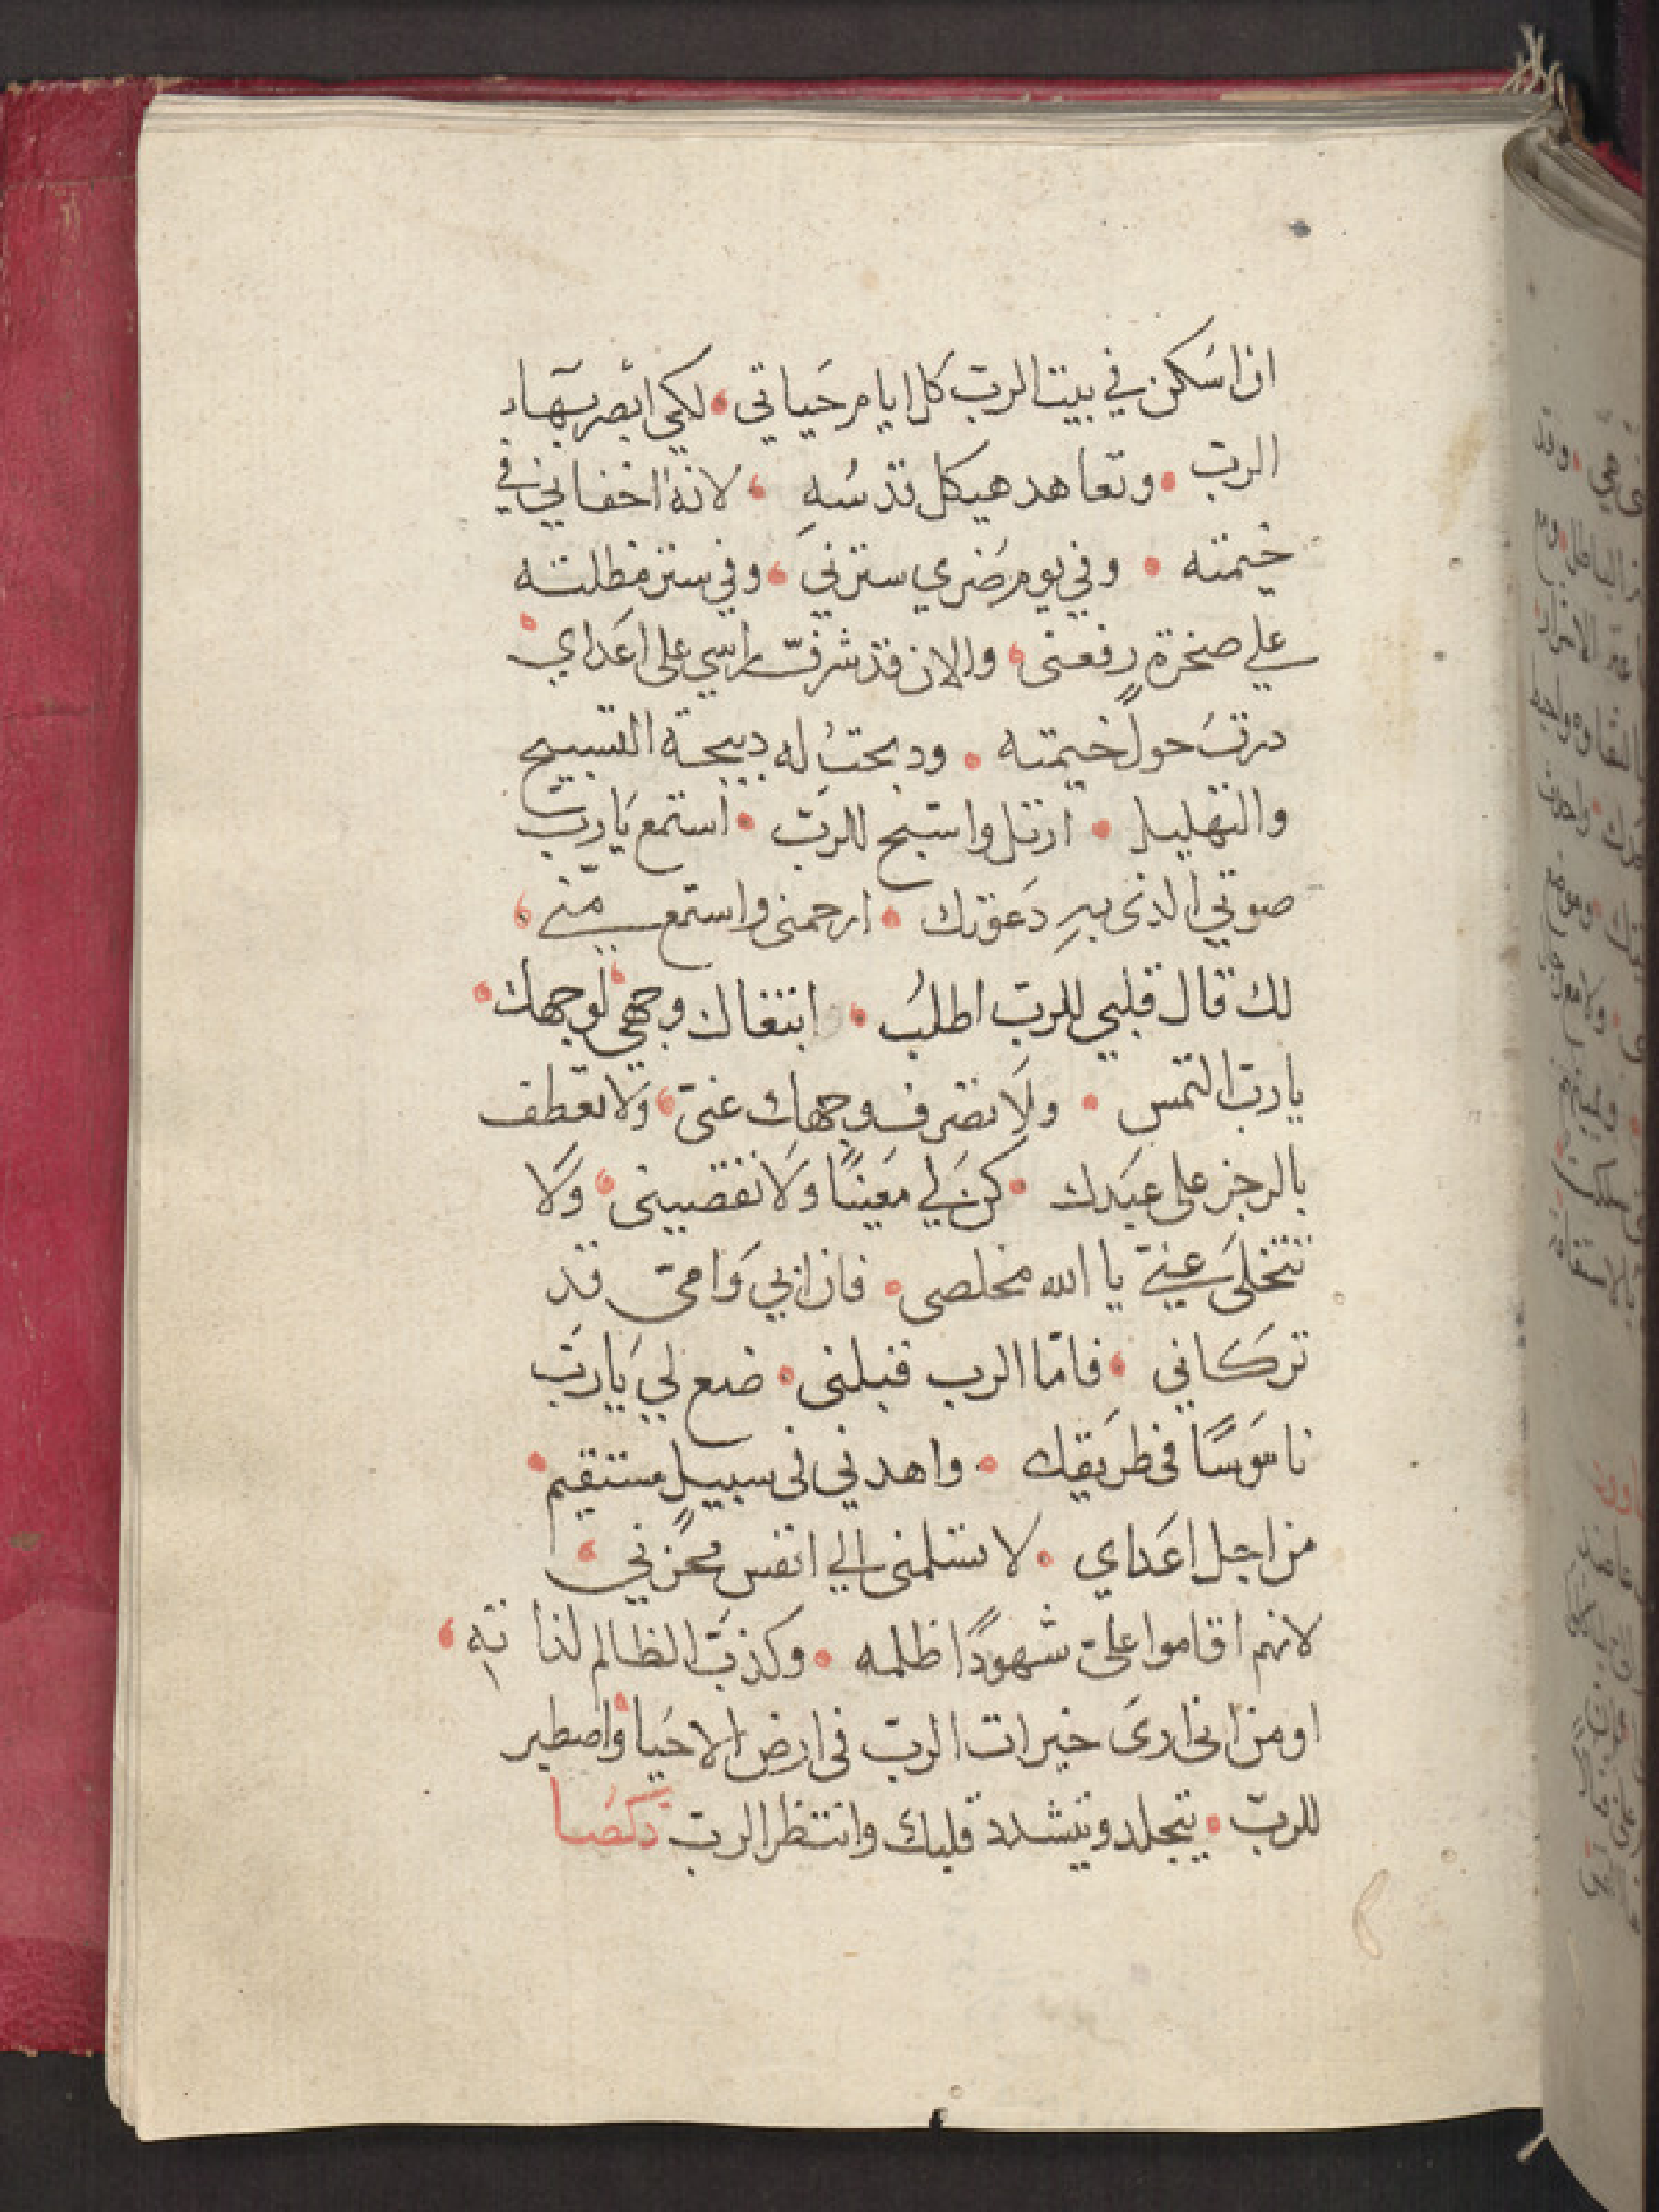 ان اسَكن في بيت الرب كل ايام حَياتي، لكي ابصر بهاء
الرب • وتعاهد هيكل قدسُهِ، لانهُ اخفاني في
خيمته • وفي يوم ضري سترني، وفي ستر مظلته
علي صخرةٍ رفعنى، والان قد شرفّ راسي على اعَداي،
درتَ حولَ خيمته • ودبحتُ له دبيحة التسبيح
والتهليل • ارتل واسَبح للربّ • استمع يَا ربّ
صوتي الذى بهِ دَعَوتك • ارحمنى واستمع منّي،
لك قال قلبي للربّ اطلبُ، ابتغاك وجهي، لوجهك •
يا ربّ التمس • ولَا تصَرف وجهك عَنىّ، وَلا تعَطف
بالرجز على عبَدك • كن لَي معَينًا وَلَا تقصيينى، وَلَا
تتخلىَ عنيّ يا الله مخلصى • فان ابي وَامىّ قد
تركَاني، فامّا الرب قبلنى • ضع ليَ يَا ربّ
ناسَوسًا في طريَقك • واهدني فى سبيلٍ مستقيم •
من اجل اعَداي • لا تسَلمنى الي انفس محَزنيَ،
لانهم اقاموا علىّ شهوَدًا ظلمه • وكذبَ الظالم لذاتهِ،
اومن انى ارىَ خيرات الربّ فى ارض الاحيَا، واصطبر
للربّ • يتجلد ويتشدد قلبك وانتظر الربّ